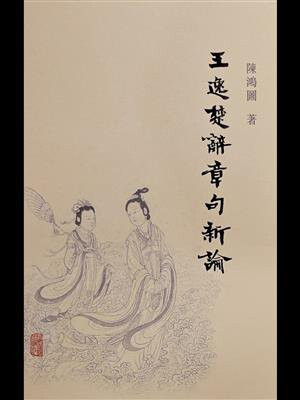 陳鴻圖 著
王逸楚辭章句新論